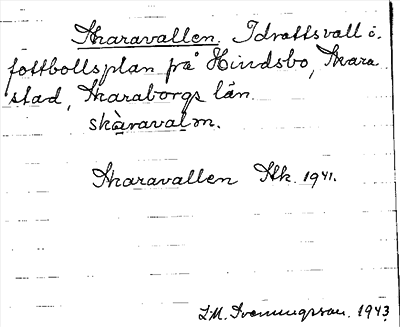 Skaravallen. Idrottsvall i.
fottbollsplan på Hindsbo, Skara
stad, Skaraborgs län.
skàravalm.
Skaravallen Stk. 1941.
J.M. Svenungsson. 1943